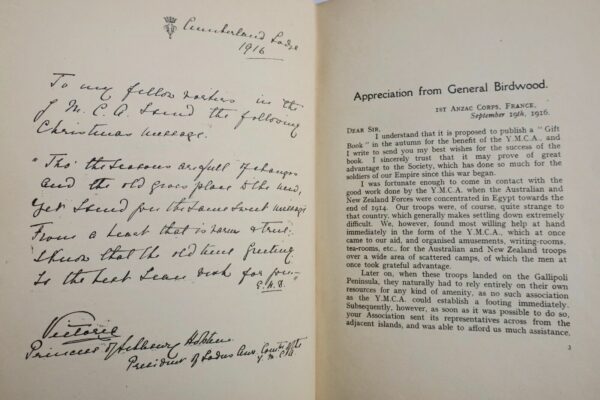 Cumberland Lodge
1916
To my fellow workers in the
Y. M. C. A. I send the following
Christmas message.
"Tho' the Seasons are full of changes
and the old gives place to the new,
Yet I send you the same sweet message
From a heart that is warm & true.
I know that the old time greeting
Is the best I can wish for you—
Victoria
Princess of Schleswig Holstein
President of Ladies Aux. Committee
Y. M. C. A.
Appreciation from General Birdwood.
1ST ANZAC CORPS, FRANCE,
September 19th, 1916.
DEAR SIR,
I understand that it is proposed to publish a "Gift
Book" in the autumn for the benefit of the Y.M.C.A., and
I write to send you my best wishes for the success of the
book. I sincerely trust that it may prove of great
advantage to the Society, which has done so much for the
soldiers of our Empire since this war began.
I was fortunate enough to come in contact with the
good work done by the Y.M.C.A. when the Australian and
New Zealand Forces were concentrated in Egypt towards the
end of 1914. Our troops were, of course, quite strange to
that country, which generally makes settling down extremely
difficult. We, however, found most willing help at hand
immediately in the form of the Y.M.C.A., which at once
came to our aid, and organised amusements, writing-rooms,
tea-rooms, etc., for the Australian and New Zealand troops
over a wide area of scattered camps, of which the men at
once took grateful advantage.
Later on, when these troops landed on the Gallipoli
Peninsula, they naturally had to rely entirely on their own
resources for any kind of amenity, as no such association
as the Y.M.C.A. could establish a footing immediately.
Subsequently, however, as soon as it was possible to do so,
your Association sent its representatives across from the
adjacent islands, and was able to afford us much assistance,
3